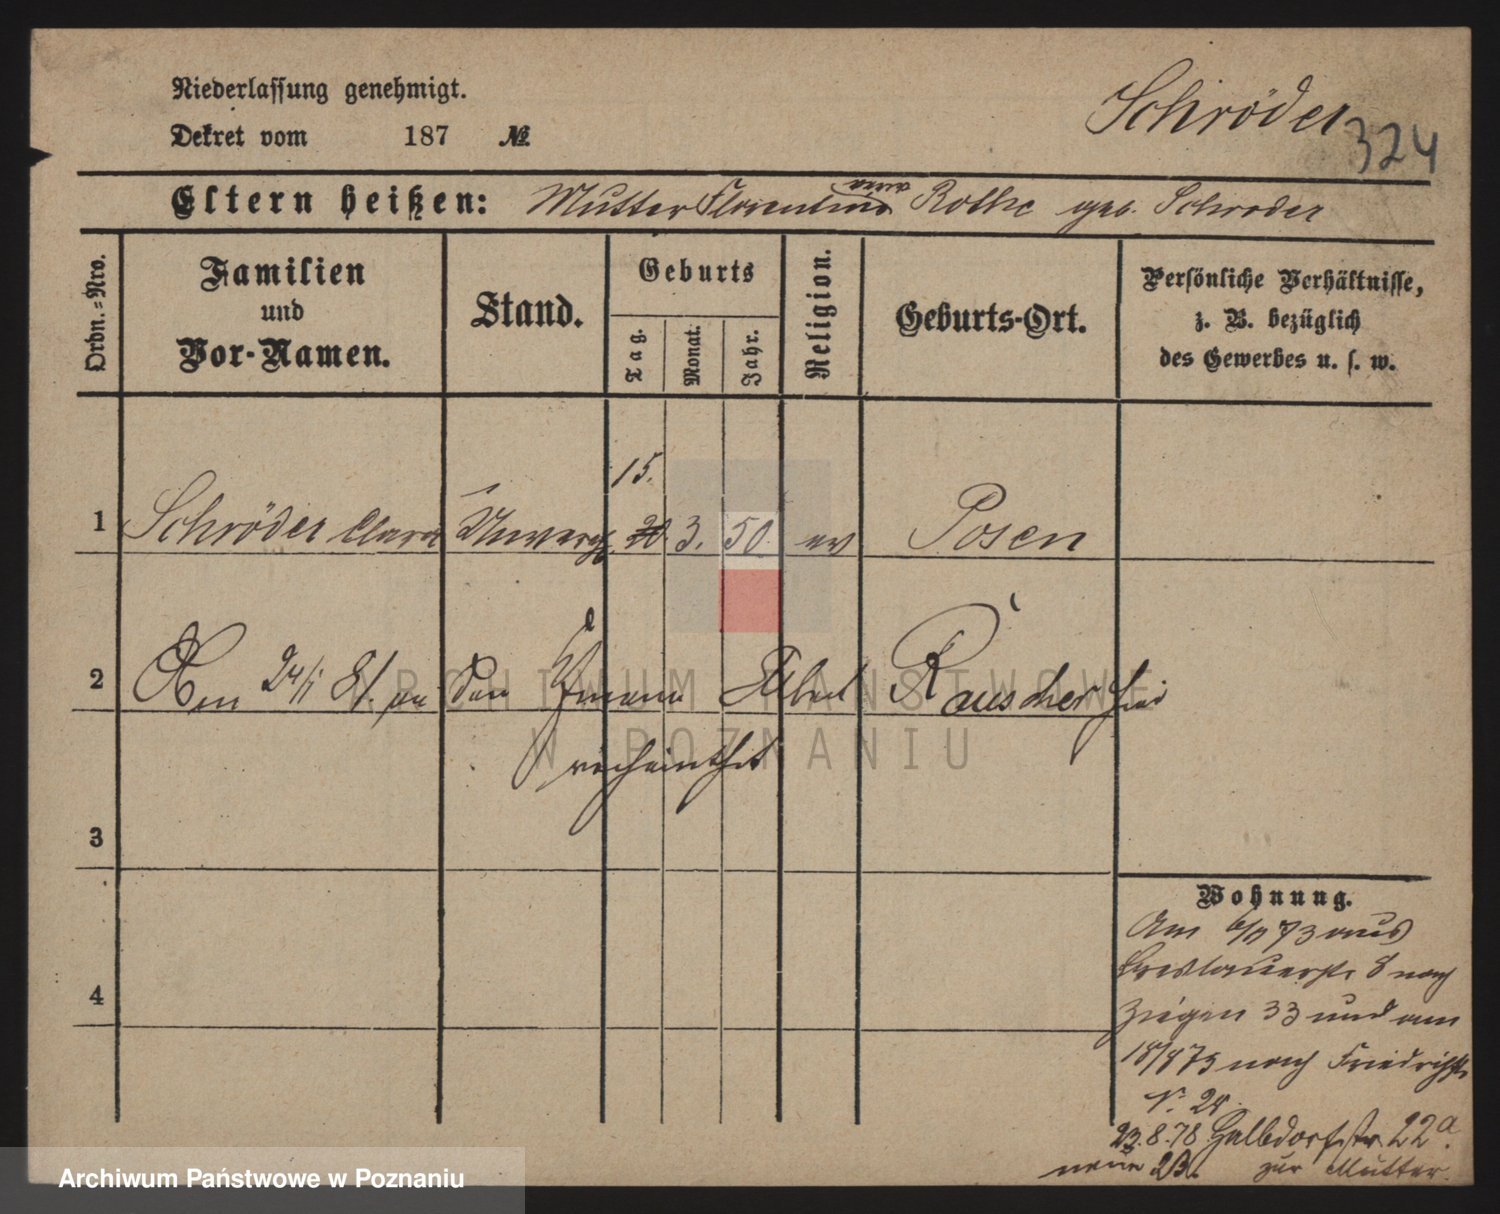 Niederlassung genehmigt.
Dekret vom 187 №
Schröder
324
Eltern heißen: Mutter Florentine Rothe geb. Schröder
Ordn.=Nro.
Familien
und
Vor-Namen.
Stand.
Geburts
Tag.
Monat.
Jahr.
Religion.
Geburts-Ort.
Persönliche Verhältnisse,
z. B. bezüglich
des Gewerbes u. s. w.
15.
1 Schröder Clara Unvereh. 20. 3. 50 ev Posen
2 Am 24/1 81. an den Albert Rauscher hier
verheirathet
3
4
Wohnung.
Am 73 aus
Breslauerstr. 8 nach
Ziegen 33 und am
18/8 73 nach Friedrichstr.
N. 24.
23.8.78 Halbdorfstr. 22a.
neue 2B. zur Mutter.
ARCHIWUM PAŃSTWOWE
W POZNANIU
Archiwum Państwowe w Poznaniu